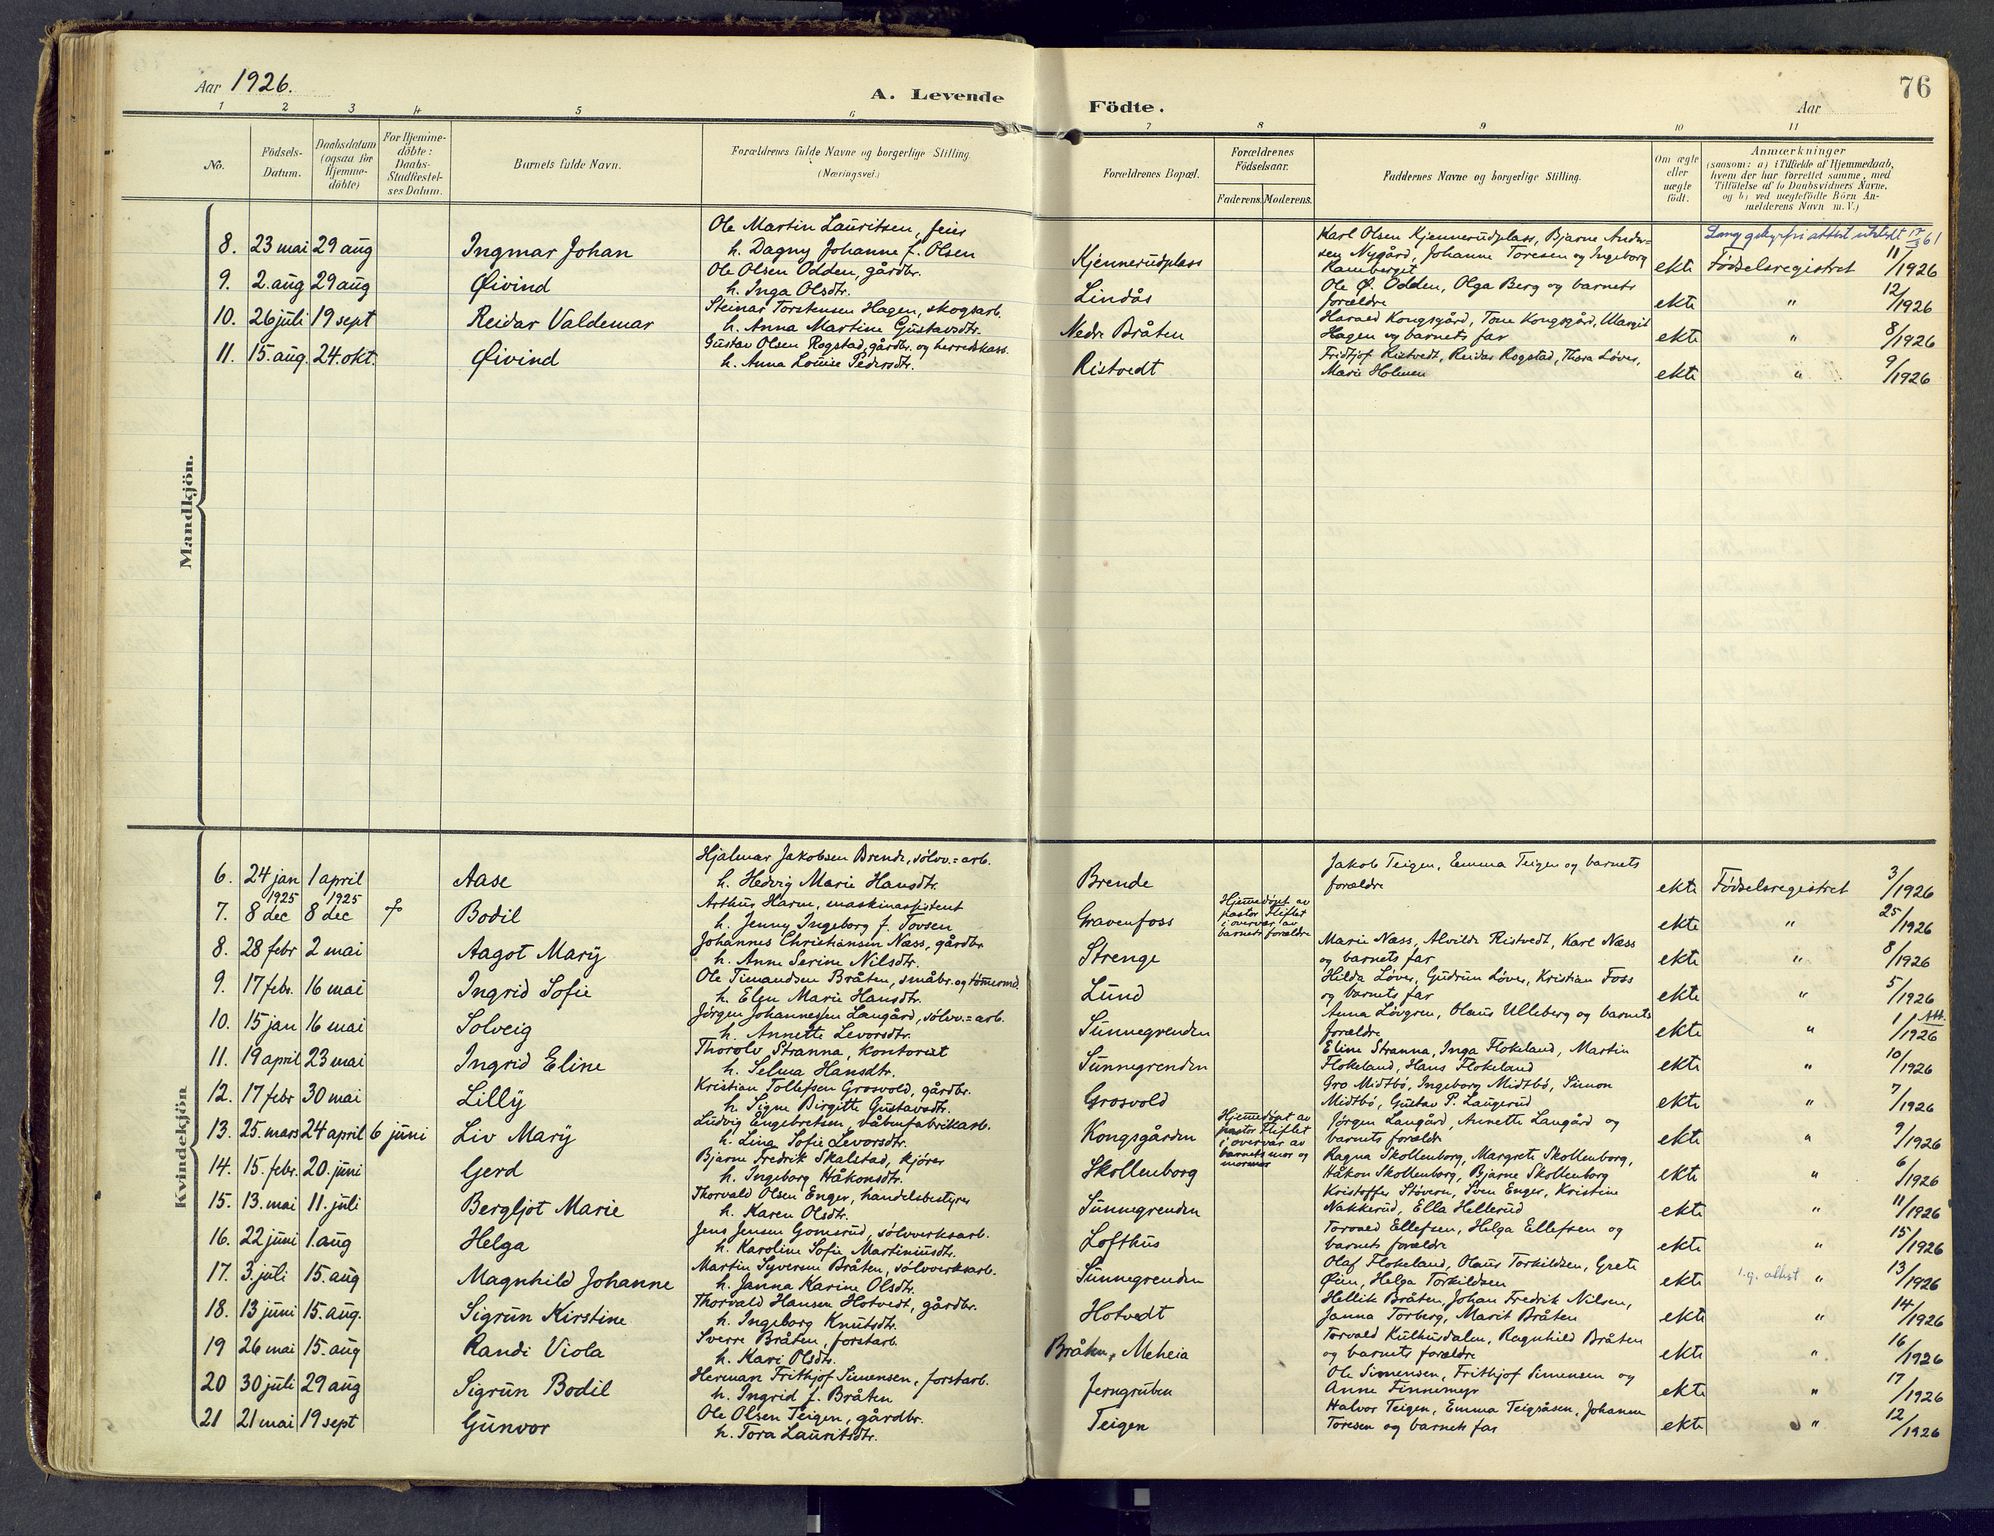 76
Aar 1926.
A. Levende Födte.
Aar
1 2 3 4 5 6 7 8 9 10 11
No.
Födsels-Datum.
Daabsdatum (ogsaa for Hjemme-döbte)
For Hjemme-döbte: Daabs-Stadfæstel-ses Datum.
Barnets fulde Navn.
Forældrenes fulde Navne og borgerlige Stilling. (Næringsvei.)
Forældrenes Bopæl.
Forældrenes Födselsaar.
Faderens. Moderens.
Faddernes Navne og borgerlige Stilling.
Om ægte eller uægte födt.
Anmærkninger
(saasom: a) i Tilfælde af Hjemmedaab,
hvem der har forrettet samme, med
Tilföielse af to Daabsvidners Navne,
og b) ved uægtefödte Börn An-
melderens Navn m. V.)
Mandkjön.
8. 23 mai 29 aug Ingmar Johan Ole Martin Lauritsen, feier h. Dagny Johanne f. Olsen Kjennerudplass Karl Olsen Kjennerudplass, Bjarne Ander=sen Nygård, Johanne Toresen og Ingeborg Ramberget ekte Fødselsregistret 11/1926
9. 2. aug 29 aug Øivind Ole Olsen Odden, gårdbr. h. Inga Olsdtr. Lindås Ole Ø. Odden, Olga Berg og barnets forældre ekte " 12/1926
10. 26 juli 19 sept Reidar Valdemar Steinar Torstensen Hagen, skogsarb. h. Anna Martine Gustavsdtr. Nedre Bråten Harald Kongsgård, Tom Kongsgård, Margit Hagen og barnets far ekte " 8/1926
11. 15. aug. 24. okt. Øivind Gustav Olsen Rogstad, gårdbr. og herredskass. h. Anna Louise Pedersdtr. Ristvedt Fridtjof Ristvedt, Reidar Rogstad, Thora Løver, Marie Holmen ekte " 9/1926
Kvindekjön
6. 24 jan 1 april Aase Hjalmar Jakobsen Brende, sølvv.=arb. h. Hedvig Marie Hansdtr. Brende Jakob Teigen, Emma Teigen og barnets forældre ekte Fødselsregistret 3/1926
7. 1925 8 dec 1925 8 dec Bodil Arthur Harm, maskinassistent h. Jenny Ingeborg f. Tovsen Gravenfoss Hjemmedøpt av pastor Fliflet i overvær av barnets forældre ekte " 25/1926
8. 28 febr 2 mai Aagot Mary Johannes Christiansen Næss, gårdbr h. Anne Serine Nilsdtr. Strenge Marie Næss, Alvilde Ristvedt, Karl Næss og barnets far ekte " 8/1926
9. 17 febr. 16 mai Ingrid Sofie Ole Timandsen Bråten, småbr. og tømmerm. h. Elen Marie Hansdtr. Lund Hilda Løver, Gudrun Løver, Kristian Foss og barnets far ekte " 5/1926
10. 15 jan 16 mai Solveig Jørgen Johannessen Langård, sølvv.=arb. h. Annette Levorsdtr. Sunnegrenden Anna Løvgren, Olaus Ulleberg og barnets forældre ekte " 1/1926 Att.
11. 19 april 23 mai Ingrid Eline Thorolv Stranna, kontorist h. Selma Hansdtr. Sunnegrenden Eline Stranna, Inga Flokeland, Martin Flokeland, Hans Flokeland ekte " 10/1926
12. 17 febr 30 mai Lilly Kristian Tollefsen Grosvold, gårdbr. h. Signe Birgitte Gustavsdtr. Grosvold Gro Midtbø, Ingeborg Midtbø, Simon Midtbø, Gustav P. Laugerud ekte " 7/1926
13. 25. mars 24 april 6 juni Liv Mary Ludvig Engebretsen, våbenfabrikarb. h. Lina Sofie Levorsdtr. Kongsgården Hjemmedøpt av pastor Fliflet i overvær av barnets mor og mormor Jørgen Langård, Annette Langård og barnets forældre ekte " 9/1926
14. 15. febr. 20. juni Gerd Bjarne Fredrik Skalstad, kjører h. Ingeborg Håkonsdtr. Skollenborg Ragna Skollenborg, Margrete Skollenborg, Håkon Skollenborg, Bjarne Skollenborg ekte " 6/1926
15. 13. mai 11. juli Bergljot Marie Thorvald Olsen Enger, handelsbestyrer h. Karen Olsdtr. Sunnegrenden Kristoffer Støvern, Sven Enger, Kristine Nakkerud, Ella Hellerud ekte " 11/1926
16. 22 juni 1. aug Helga Jens Jensen Gomsrud, sølvverksarb. h. Karoline Sofie Martiniusdtr. Lofthus Torvald Ellefsen, Helga Ellefsen og barnets forældre ekte " 15/1926
17. 3. juli 15. aug Magnhild Johanne Martin Syversen Bråten, sølvverksarb. h. Janna Karine Olsdtr. Sunnegrenden Olaf Flokeland, Olaus Torkildsen, Grete Øien, Helga Torkildsen ekte attest " 13/1926
18. 13 juni 15. aug. Sigrun Kirstine Thorvald Hansen Hotvedt, gårdbr. h. Ingeborg Knutsdtr. Hotvedt Hellik Bråten, Johan Fredrik Nilsen, Janna Torberg, Marit Bråten ekte " 14/1926
19 26 mai 15. aug Randi Viola Sverre Bråten, forstarb. h. Kari Olsdtr. Bråten, Meheia Torvald Kulhusdalen, Ragnhild Bråten og barnets forældre ekte " 16/1926
20 30 juli 29 aug Sigrun Bodil Herman Frithjof Simensen, forstarb. h. Ingrid f. Bråten Jerngruben Ole Simensen, Frithjof Simensen og Anne Finnemyr ekte " 17/1926
21 21 mai 19 sept Gunvor Ole Olsen Teigen, gårdbr. h. Tora Lauritsdtr. Teigen Halvor Teigen, Emma Teigsåsen, Johanne Toresen og barnets far ekte " 12/1926